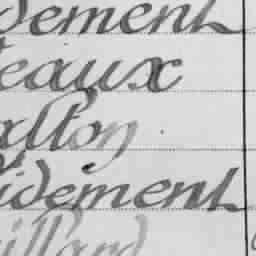 dement
eaux
alton
idement
illard